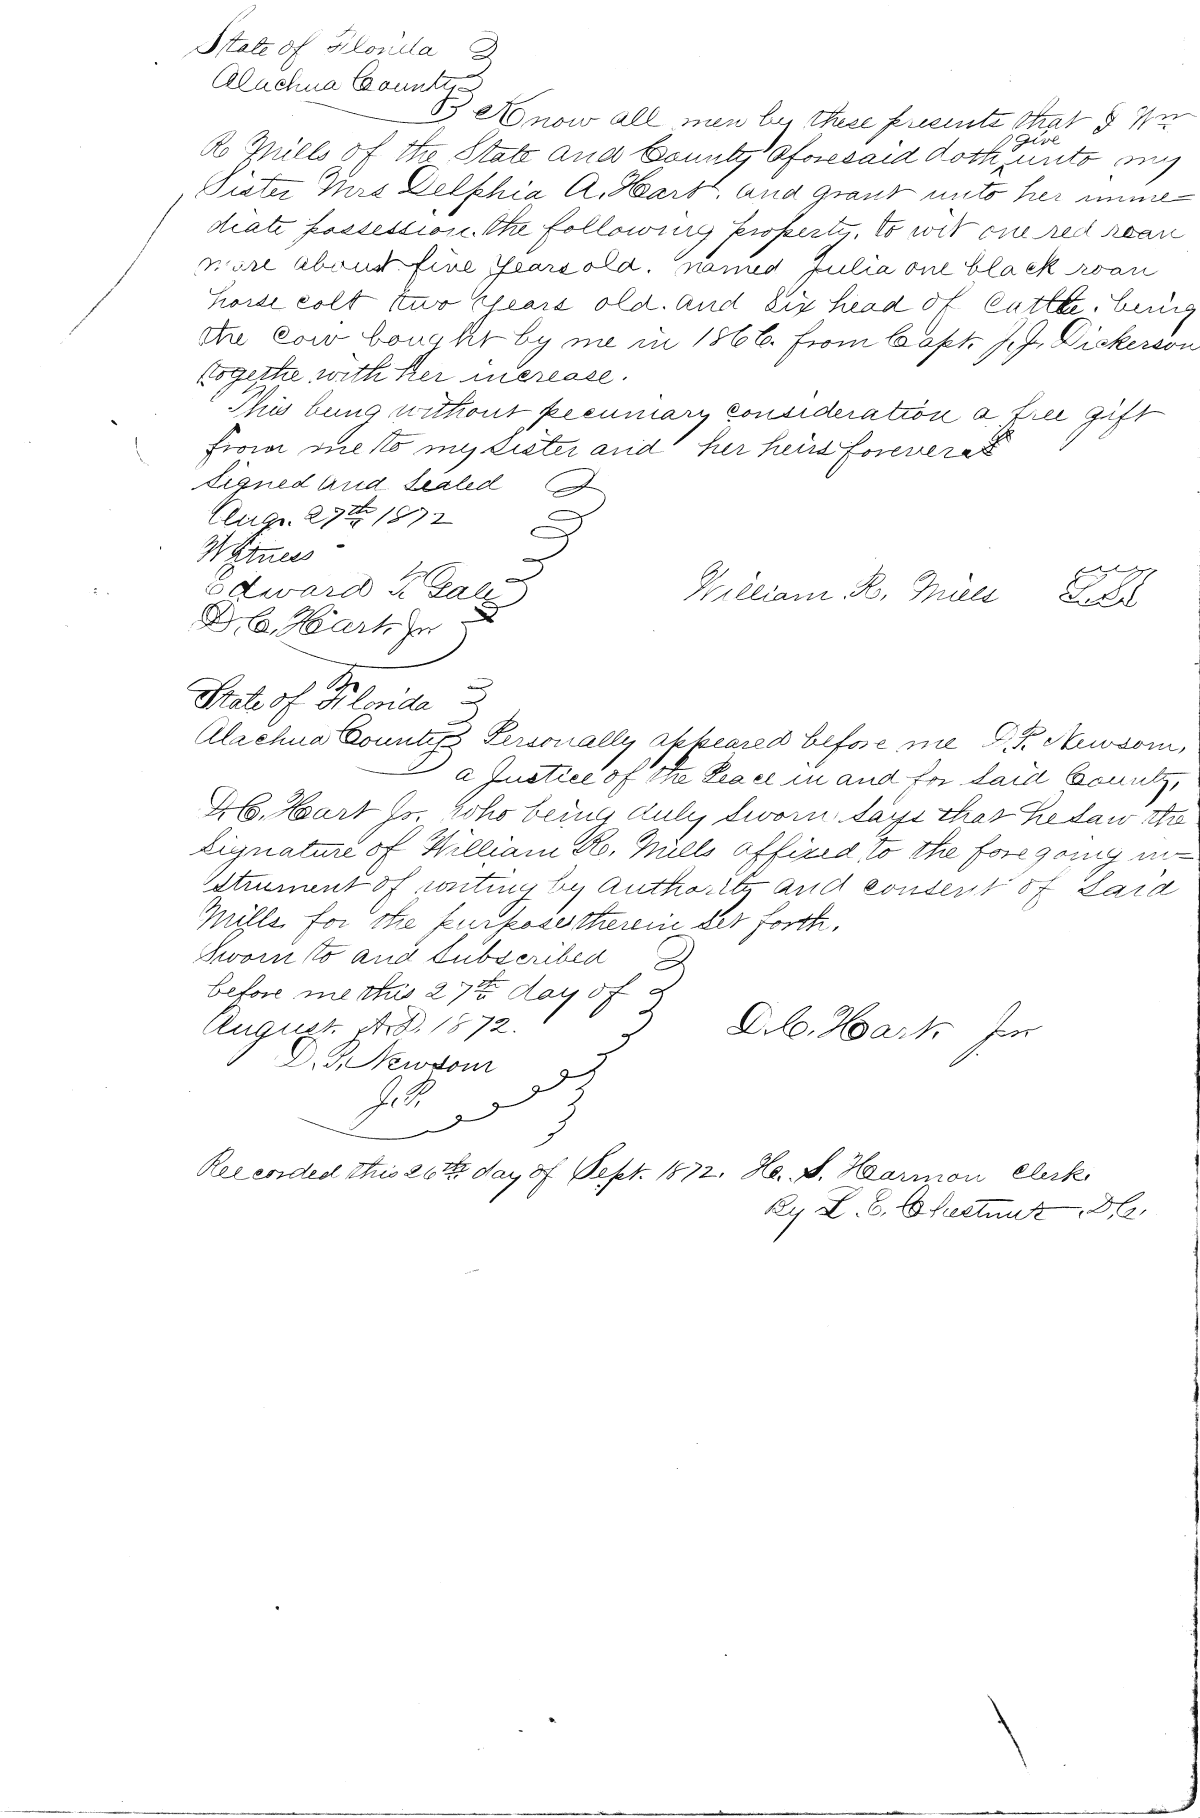 State of Florida
Alachua County
Know all men by these presents that I Wm
R Mills of the State and County aforesaid doth give unto my
Sister Mrs Delphia A. Hart. and grant unto her imme=
diate possession. the following property. to wit one red roan
mare about five years old. named Julia one black roan
horse colt two years old. and six head of Cattle. being
the cow bought by me in 1866. from Capt. J.J. Dickerson
togethe with her increase.
This being without pecuniary consideration a free gift
from me to my Sister and her heirs forever
Signed and Sealed
Aug. 27th 1872
Witness
Edward Gale
D. C. Hart. Jnr
William. R. Mills
State of Florida
Alachua County Personally appeared before me D.P. Newsom,
a Justice of the Peace in and for Said County,
D.C. Hart Jr. who being duly Sworn says that he saw the
signature of William R. Mills affixed to the foregoing in=
strument of writing by authority and consent of Said
Mills for the purpose therein set forth.
Sworn to and Subscribed
before me this 27th day of
August. A.D. 1872.
D.C. Hart Jnr
D. P. Newsom
J.P.
Recorded this 26th day of Sept. 1872. H. S. Harmon Clerk.
By L. E. Chestnut, D.C.